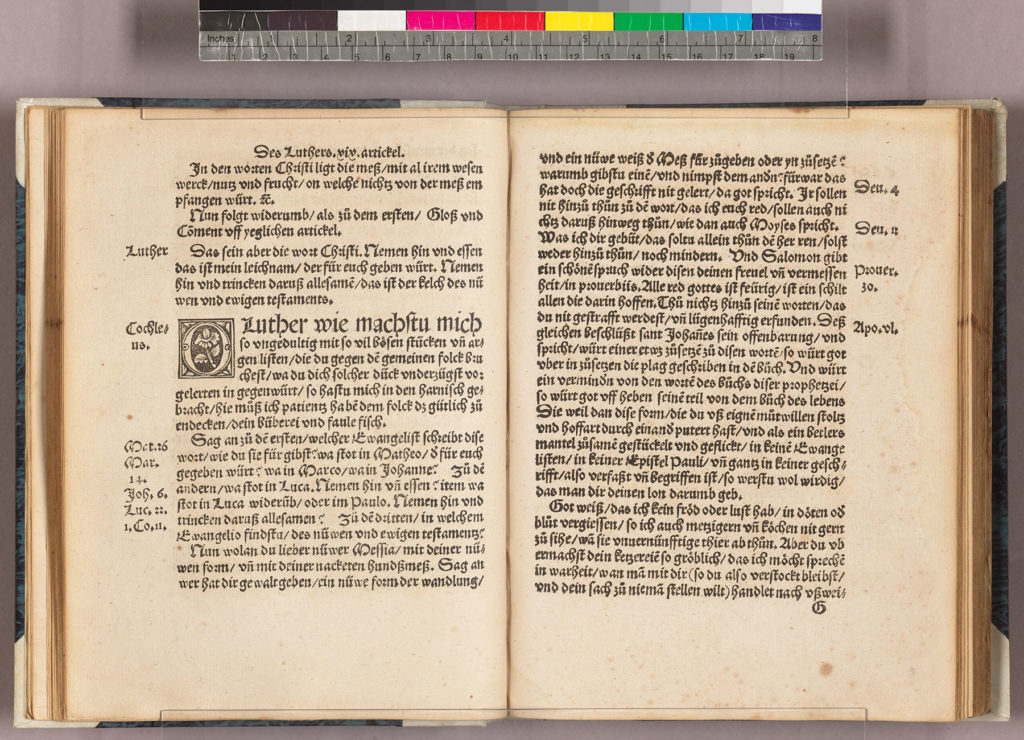 Inches 1 2 3 4 5 6 7 8
1 2 3 4 5 6 7 8 9 10 11 12 13 14 15 16 17 18 19
Des Luthers. xix. artickel.
In den worten Christi ligt die meß/mit al irem wesen
werck/nutz vnd frucht/on welche nichtz von der meß em
pfangen würt. ꝛc.
Nun folgt widerumb/als zů dem ersten/ Gloß vnd
Cōment vff yeglichen artickel.
Luther
Das sein aber die wort Christi. Nemen hin vnd essen
das ist mein leichnam/der für euch geben würt. Nemen
hin vnd trincken daruß allesamē/das ist der kelch des nü
wen vnd ewigen testaments.
Cochle⸗
us.
O Luther wie machstu mich
so vngedultig mit so vil bösen stücken vñ ar⸗
gen listen/die du gegen dē gemeinen folck bru
chest/wa du dich solcher dück vnderzügst vor
gelerten in gegenwürt/so hastu mich in den harnisch ge⸗
bracht/hie můß ich patientz habē dem folck dz gütlich zů
endecken/dein büberei vnd faule fisch.
Mat. 26
Mar.
14.
Joh. 6.
Luc. 22.
1. Co. 11.
Sag an zů dē ersten/welcher Ewangelist schreibt dise
wort/wie du sie für gibst? wa stot in Matheo/ð für euch
gegeben würt? wa in Marco/wa in Johanne? Zů dē
andern/wa stot in Luca. Nemen hin vñ essen? item wa
stot in Luca widerūb/oder im Paulo. Nemen hin vnd
trincken daruß allesamen? Zů dē dritten/in welchem
Ewangelio findstu/des nüwen vnd ewigen testamentz?
Nun wolan du lieber nüwer Messia/mit deiner nü⸗
wen form/vñ mit deiner nacketen hundßmeß. Sag an
wer hat dir gewalt geben/ein nüwe form der wandlung/
vnd ein nüwe weiß ð Meß für zůgeben oder yn zůsetzē?
warumb gibstu einē/vnd nimpst dem andñ? fürwar das
hat doch die geschrifft nit gelert/da got spricht. Ir sollen
nit hinzů thůn zů dē wort/das ich euch red/sollen auch ni
chtz daruß hinweg thůn/wie dan auch Moyses spricht.
Was ich dir gebüt/das soltu allein thůn dē her ren/solst
weder hinzů thůn/noch mindern. Vnd Salomon gibt
ein schönē spruch wider disen deinen freuel vñ vermessen
heit/in prouerbiis. Alle red gottes ist feürig/ist ein schilt
allen die darin hoffen. Thů nichtz hinzů seinē worten/das
du nit gestrafft werdest/vñ lügenhafftig erfunden. Deß
gleichen beschlüßt sant Johañes sein offenbarung/vnd
spricht/würt einer etwz zůsetzē zů disen wortē/so würt got
vber in zůsetzen die plag geschriben in dē bůch. Vnd würt
ein vermindñ von den wortē des bůchs diser prophetzei/
so würt got vff heben seinē teil von dem bůch des lebens
Die weil dan dise form/die du vß eignē můtwillen stoltz
vnd hoffart durch einand putert hast/vnd als ein betlers
mantel zůsamē gestückelt vnd geflickt/in keinē Ewange
listen/in keiner Epistel Pauli/vñ gantz in keiner gesch⸗
rifft/also verfaßt vñ begriffen ist/so werstu wol wirdig/
das man dir deinen lon darumb geb.
Got weiß/das ich kein fröd oder lust hab/in döten oð
blůt vergiessen/so ich auch metzigern vñ köchen nit gern
zů sihe/wā sie vnuernünfftige thier ab thůn. Aber du vb
ermachst dein ketzereiē so gröblich/das ich möcht sprechē
in warheit/wan mā mit dir (so du also verstockt bleibst/
vnd dein sach zů niemā stellen wilt) handlet nach vßwei⸗
G
Deu. 4
Deu. 12
Prouer.
30.
Apo. vl.